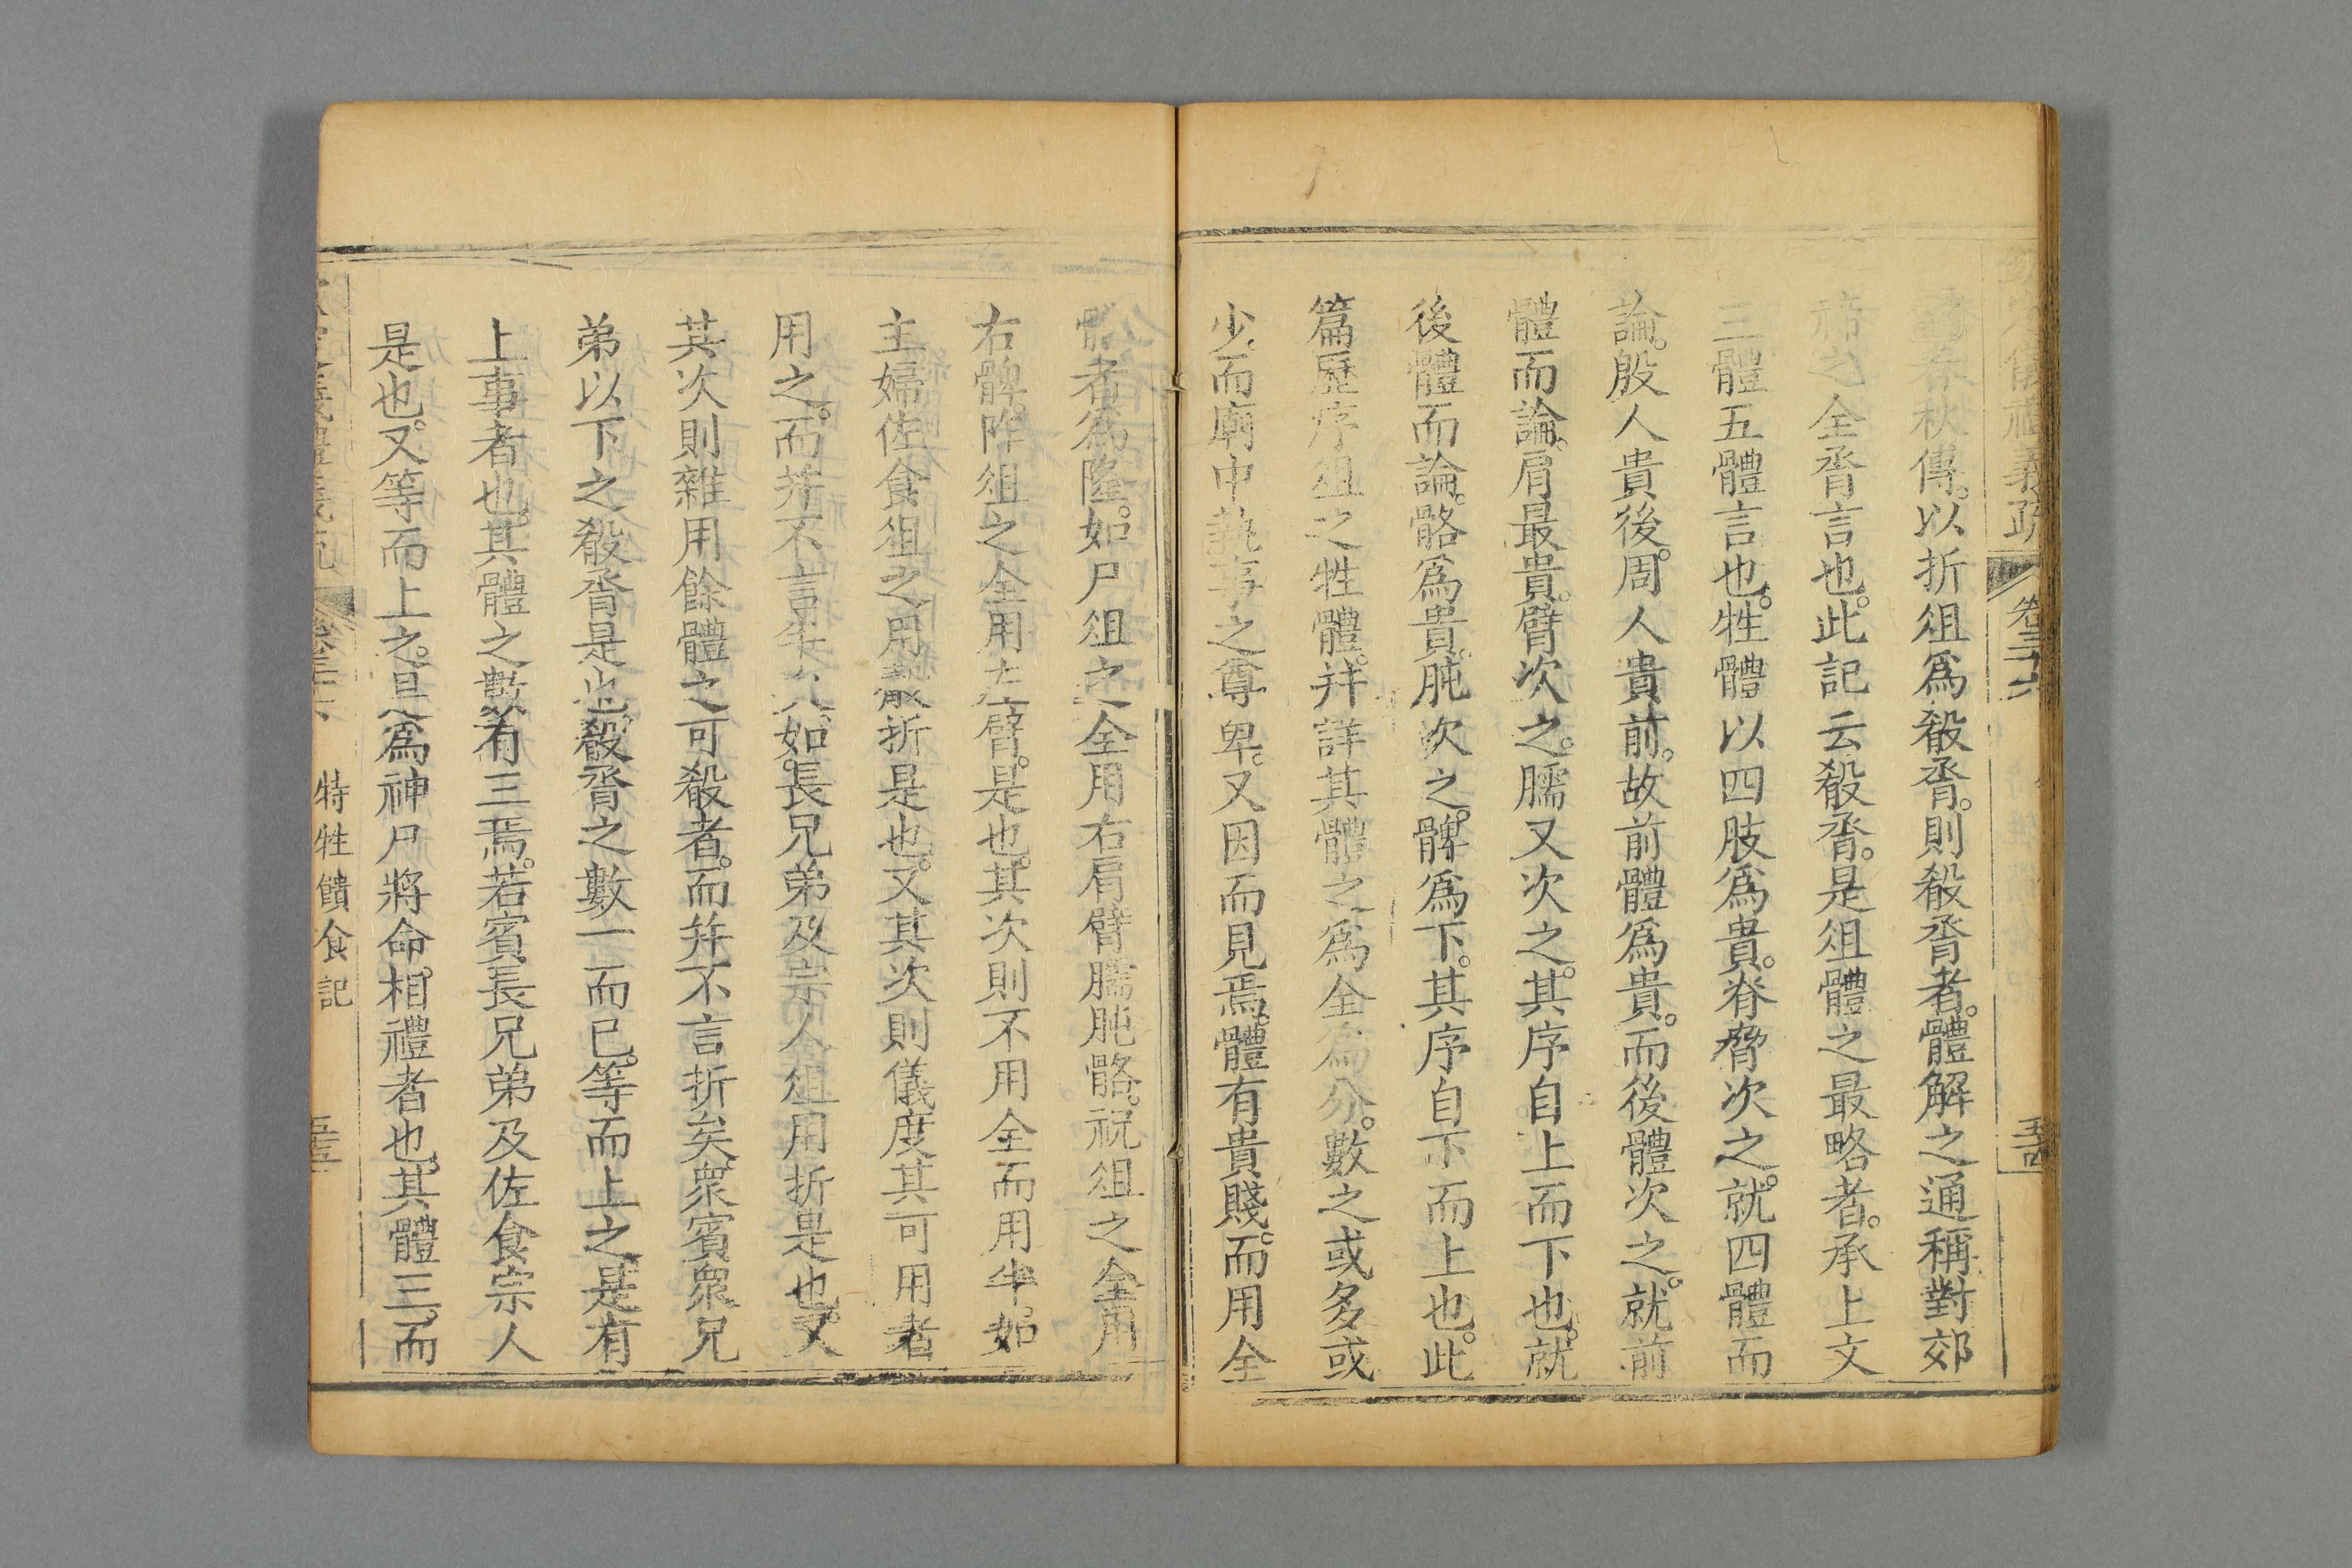 春秋傳。以折俎爲殽脀。則殽脀者。體解之通稱。對郊
禘之全脀言也。此記云殽脀。是俎體之最略者。承上文
三體五體言也。牲體以四肢爲貴。脊脅次之。就四體而
論。殷人貴後。周人貴前。故前體爲貴。而後體次之。就前
體而論。肩最貴。臂次之。臑又次之。其序自上而下也。就
後體而論。骼爲貴。肫次之。髀爲下。其序自下而上也。此
篇歷序俎之牲體。并詳其體之爲全爲分。數之或多或
少。而廟中執事之尊卑。又因而見焉。體有貴賤。而用全
體者爲隆。如尸俎之全用右肩臂臑肫骼。祝俎之全用
右髀。阼俎之全用左臂。是也。其次則不用全而用半。如
主婦佐食俎之用觳折是也。又其次則儀度其可用者
用之。而并不言牲體。如長兄弟及宗人俎用折是也。又
其次則雜用餘體之可殽者。而并不言折矣。衆賓衆兄
弟以下之殽脀是也。殽脀之數一而已。等而上之。是有
上事者也。其體之數有三焉。若賓長兄弟及佐食宗人
是也。又等而上之。是爲神尸將命相禮者也。其體三。而
欽定儀禮義疏
卷三十六
特牲饋食記